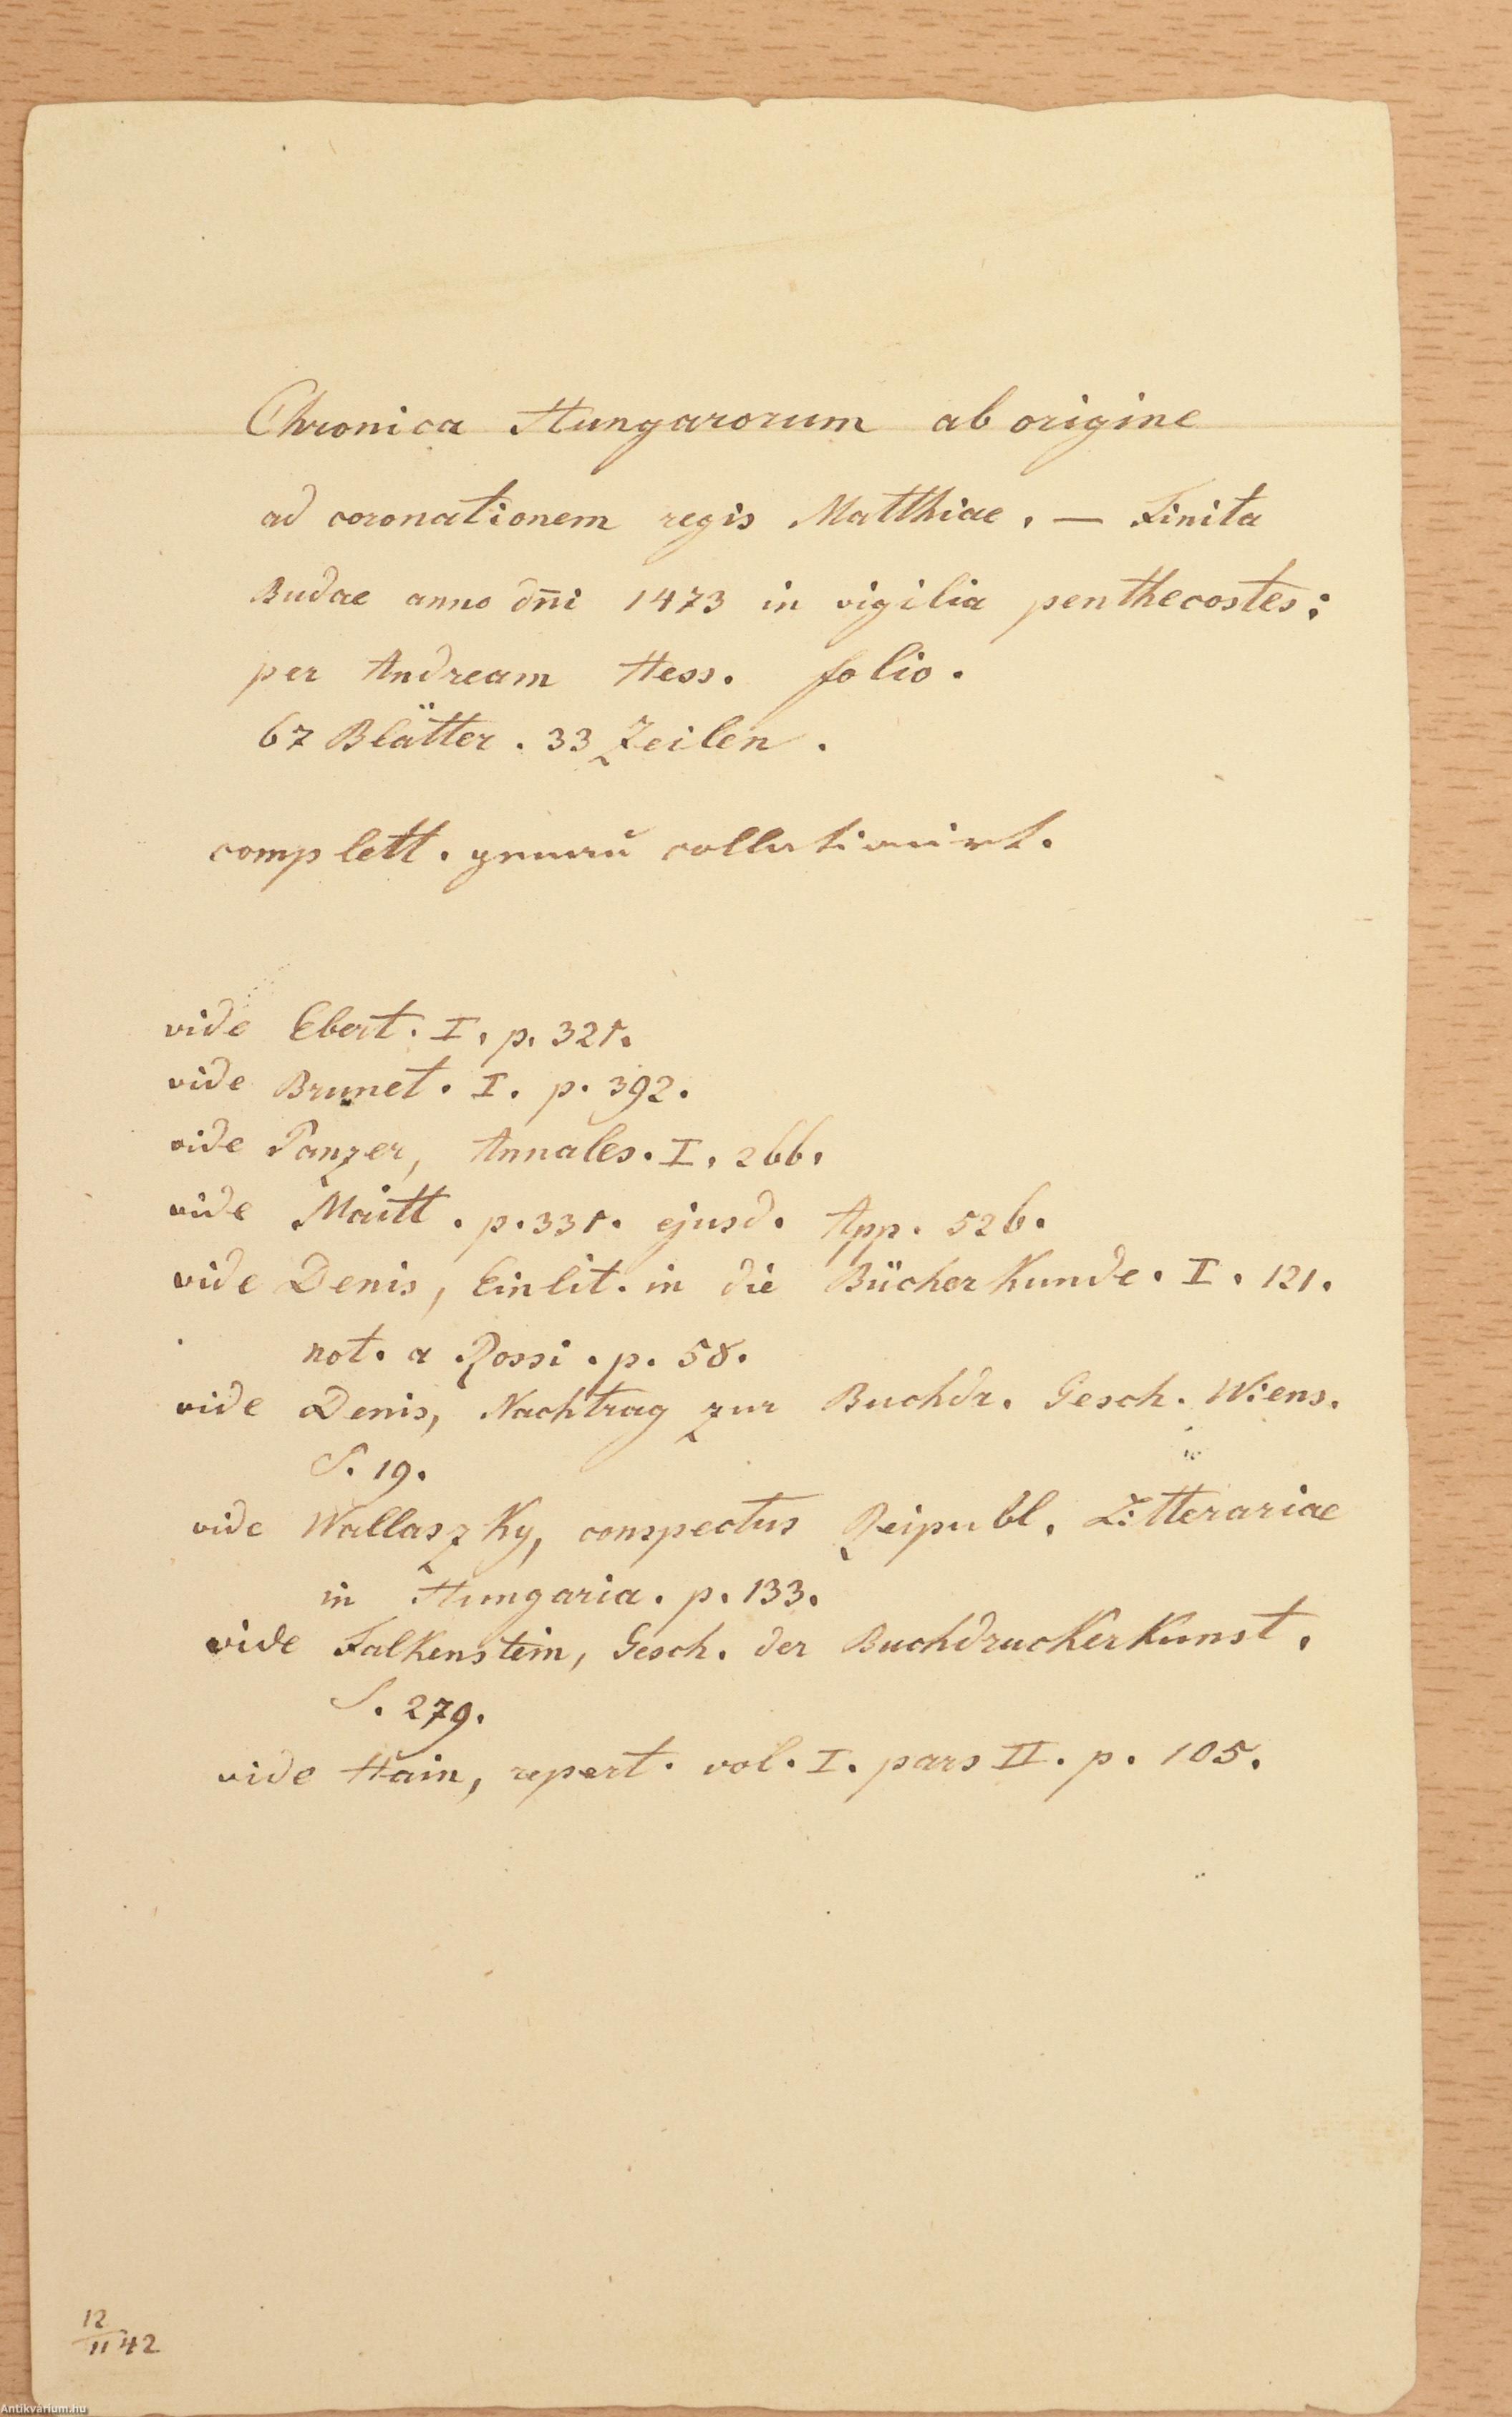 Chronica Hungarorum ab origine
ad coronationem regis Matthiae. — Finita
Budae anno dn̄i 1473 in vigilia penthecostes:
per Andream Hess. folio.
67 Blätter. 33 Zeilen.
complett. genau collationirt.
vide Ebert. I. p. 321.
vide Brunet. I. p. 392.
vide Panzer, Annales. I. 266.
vide Maitt. p. 331. ejusd. App. 526.
vide Denis, Einlit. in die Bücherkunde. I. 121.
not. a Rossi. p. 58.
vide Denis, Nachtrag zur Buchdr. Gesch. Wiens.
S. 19.
vide Wallaszky, conspectus Reipubl. Litterariae
in Hungaria. p. 133.
vide Falkenstein, Gesch. der Buchdruckerkunst.
S. 279.
vide Hain, repert. vol. I. pars II. p. 105.
12
11 42
Antikvárium.hu